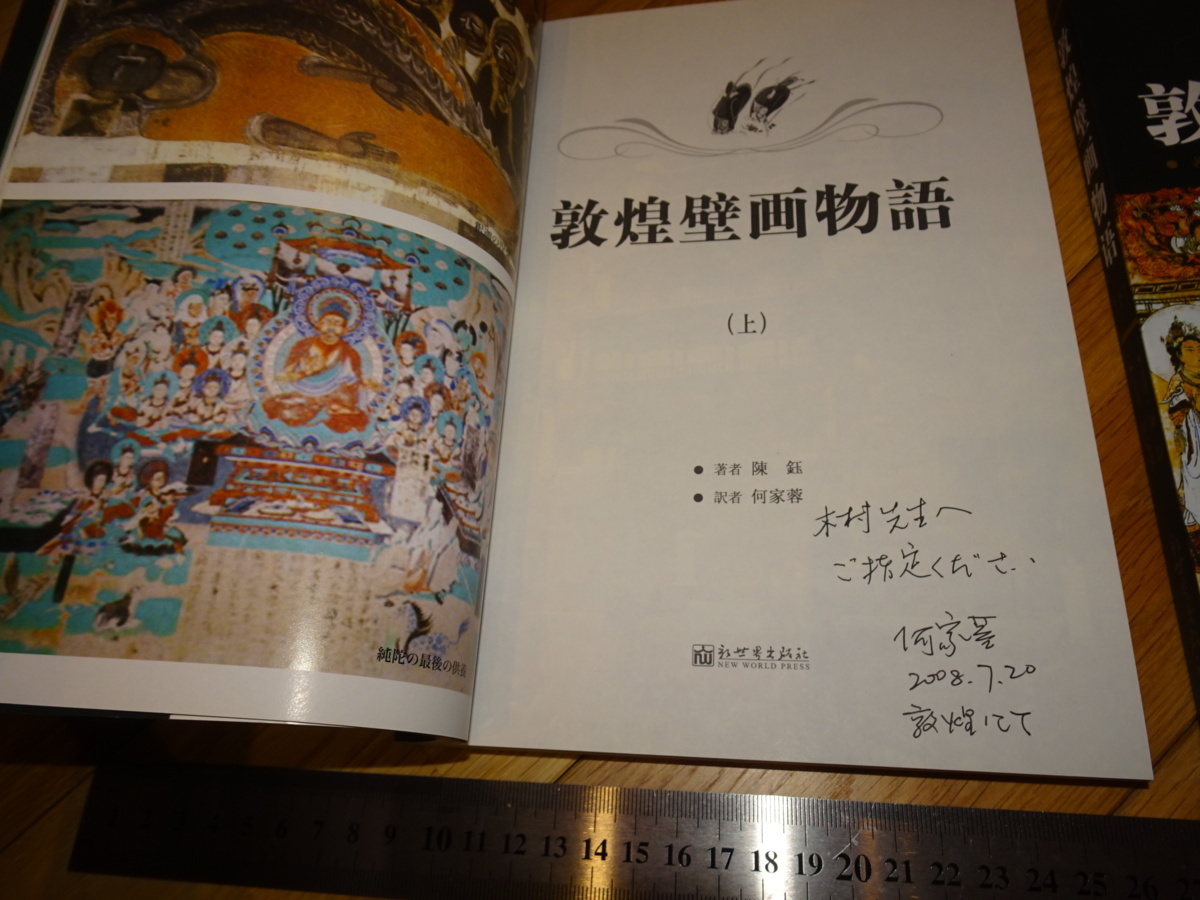 純陀の最後の供養
敦煌壁画物語
(上)
● 著者 陳 鈺
● 訳者 何家蓉
木村先生へ
ご指定くださ、、
何家蓉
2008.7.20
敦煌にて
新世界出版社
NEW WORLD PRESS
敦煌壁画物語
敦
8 9 10 11 12 13 14 15 16 17 18 19 20 21 22 23 24 25 26